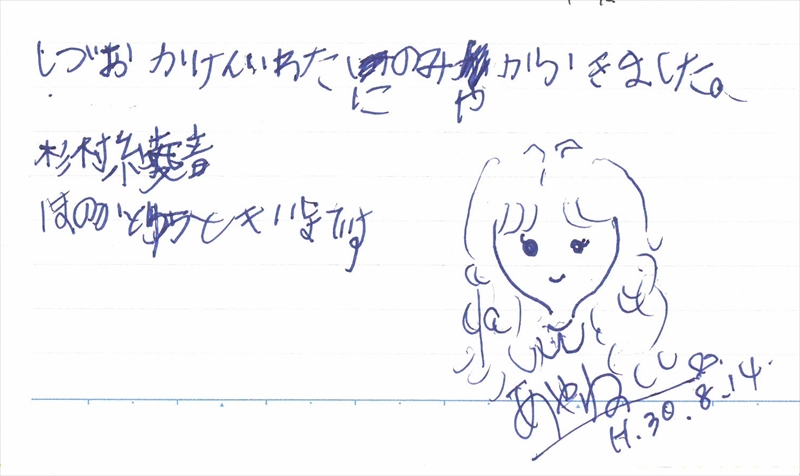 しづおかけんいわたしのみやからいきました。
杉村綾音
ほのかとゆうときいまです
あやね
H.30.8.14.